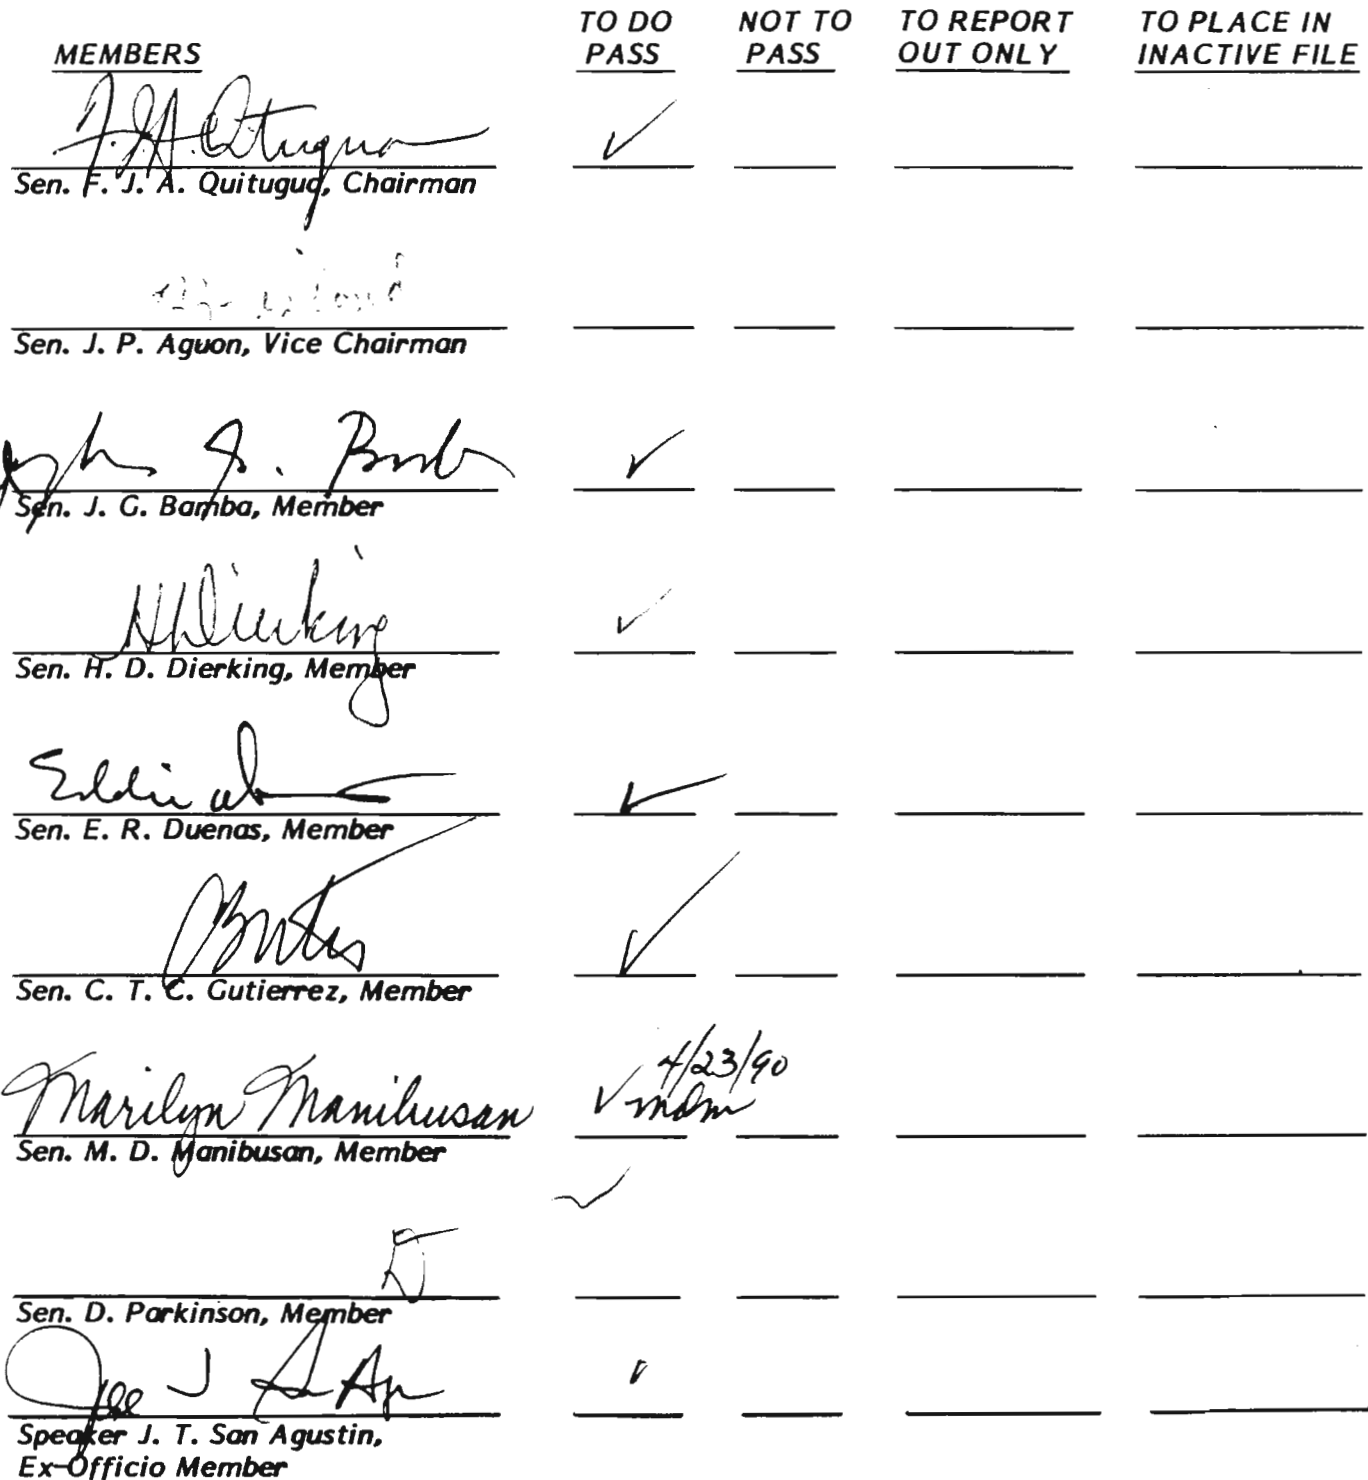 MEMBERS TO DO PASS NOT TO PASS TO REPORT OUT ONLY TO PLACE IN INACTIVE FILE
Sen. F. J. A. Quitugua, Chairman
Sen. J. P. Aguon, Vice Chairman
Sen. J. G. Bamba, Member
HDierking
Sen. H. D. Dierking, Member
Eddie
Sen. E. R. Duenas, Member
Sen. C. T. C. Gutierrez, Member
4/23/90
Marilyn Manibusan ✓ mdm
Sen. M. D. Manibusan, Member
Sen. D. Parkinson, Member
Speaker J. T. San Agustin,
Ex-Officio Member